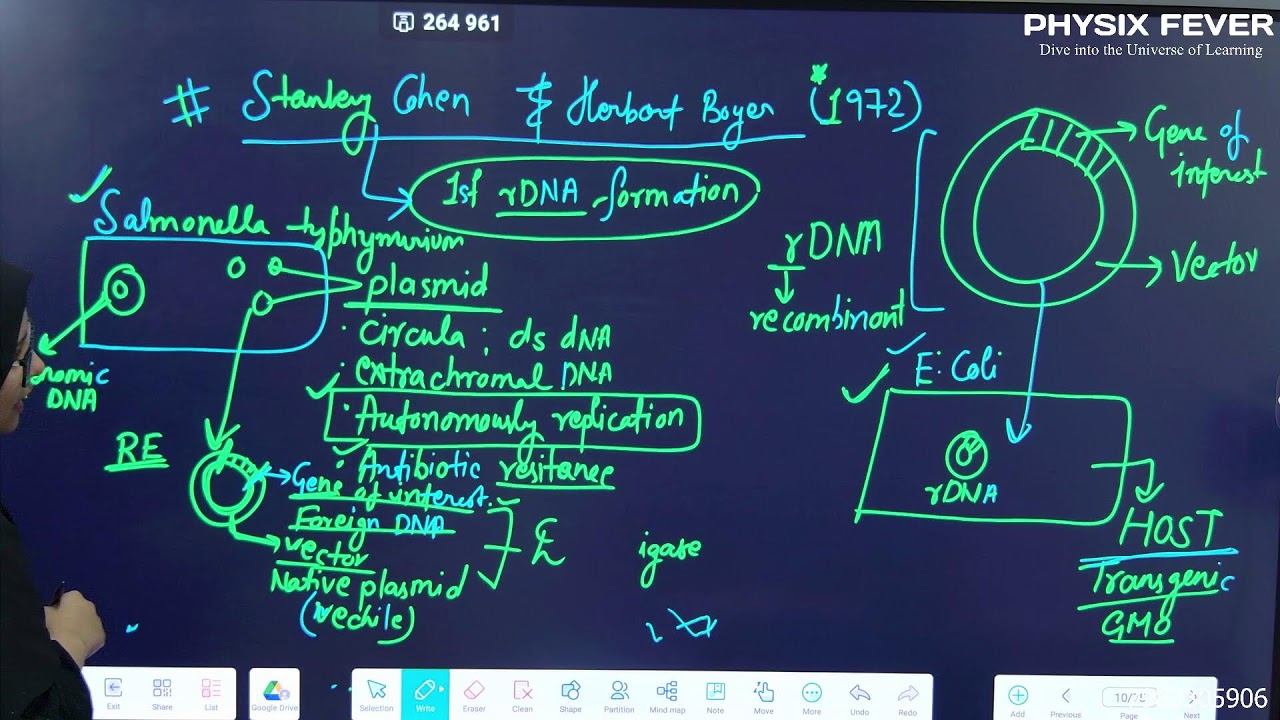 264 961
PHYSIX FEVER
Dive into the Universe of Learning
# Stanley Cohen & Herbert Boyer (1972)
*
1st rDNA formation
Salmonella typhymurium
plasmid
• circula; ds dNA
• extrachromal DNA
• Autonomously replication
• Antibiotic resitance
omic
DNA
RE
Gene of interest.
Foreign DNA
vector
Native plasmid
(vechile)
igase
rDNA
recombinant
Gene of
interest
Vector
E. Coli
rDNA
HOST
Transgenic
GMO
Exit
Share
List
Google Drive
Selection
Write
Eraser
Clean
Shape
Partition
Mind map
Note
Move
More
Undo
Redo
Add
Previous
Page
Next
5906